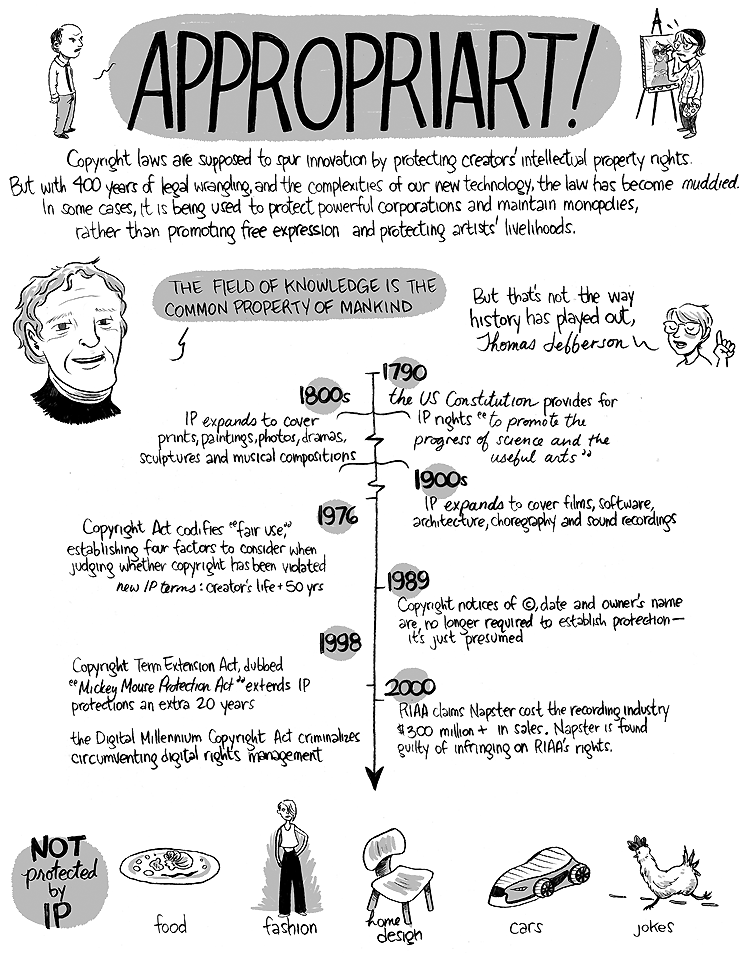 APPROPRIART!
Copyright laws are supposed to spur innovation by protecting creators' intellectual property rights.
But with 400 years of legal wrangling, and the complexities of our new technology, the law has become muddied.
In some cases, it is being used to protect powerful corporations and maintain monopolies,
rather than promoting free expression and protecting artists' livelihoods.
THE FIELD OF KNOWLEDGE IS THE
COMMON PROPERTY OF MANKIND
But that's not the way
history has played out,
Thomas Jefferson
1790
the US Constitution provides for
IP rights "to promote the
progress of science and the
useful arts"
1800s
IP expands to cover
prints, paintings, photos, dramas,
sculptures and musical compositions
1900s
IP expands to cover films, software,
architecture, choregraphy and sound recordings
1976
Copyright Act codifies "fair use,"
establishing four factors to consider when
judging whether copyright has been violated
new IP terms: creator's life + 50 yrs
1989
Copyright notices of ©, date and owner's name
are, no longer required to establish protection—
it's just presumed
1998
Copyright Term Extension Act, dubbed
"Mickey Mouse Protection Act" extends IP
protections an extra 20 years
the Digital Millennium Copyright Act criminalizes
circumventing digital rights management
2000
RIAA claims Napster cost the recording industry
$300 million+ in sales. Napster is found
guilty of infringing on RIAA's rights.
NOT
protected
by
IP
food
fashion
home
design
cars
jokes